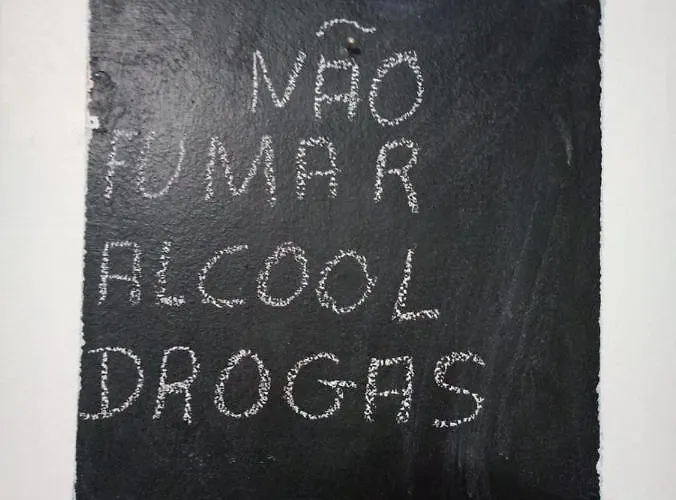 NÃO
FUMAR
ALCOOL
DROGAS